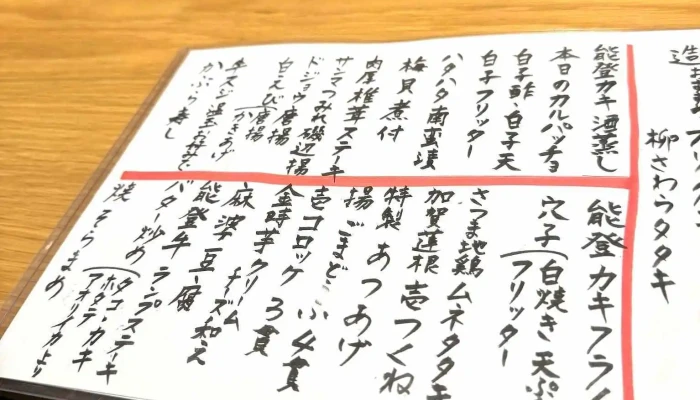 柳さわらタタキ
能登カキ酒蒸し
本日のカルパッチョ
白子酢、白子天
白子フリッター
ハタハタ南蛮漬
梅貝煮付
肉厚椎茸ステーキ
サンマつみれ磯辺揚
ドジョウ唐揚
白えび(唐揚 かきあげ
牛スジ温玉お好みで
かにぶら寿し
能登カキフライ
穴子(白焼き 天ぷ
フリッター
さつま地鶏ムネタタキ
加賀蓮根壱つくね
特製あつあげ
揚ごまどうふ4貫
壱コロッケ3貫
金時芋クリーム
麻婆豆腐 チーズ和え
能登牛ランプステーキ
バター炒め(タコ・カキ
ホタテ
アオリイカより
焼そらまめ